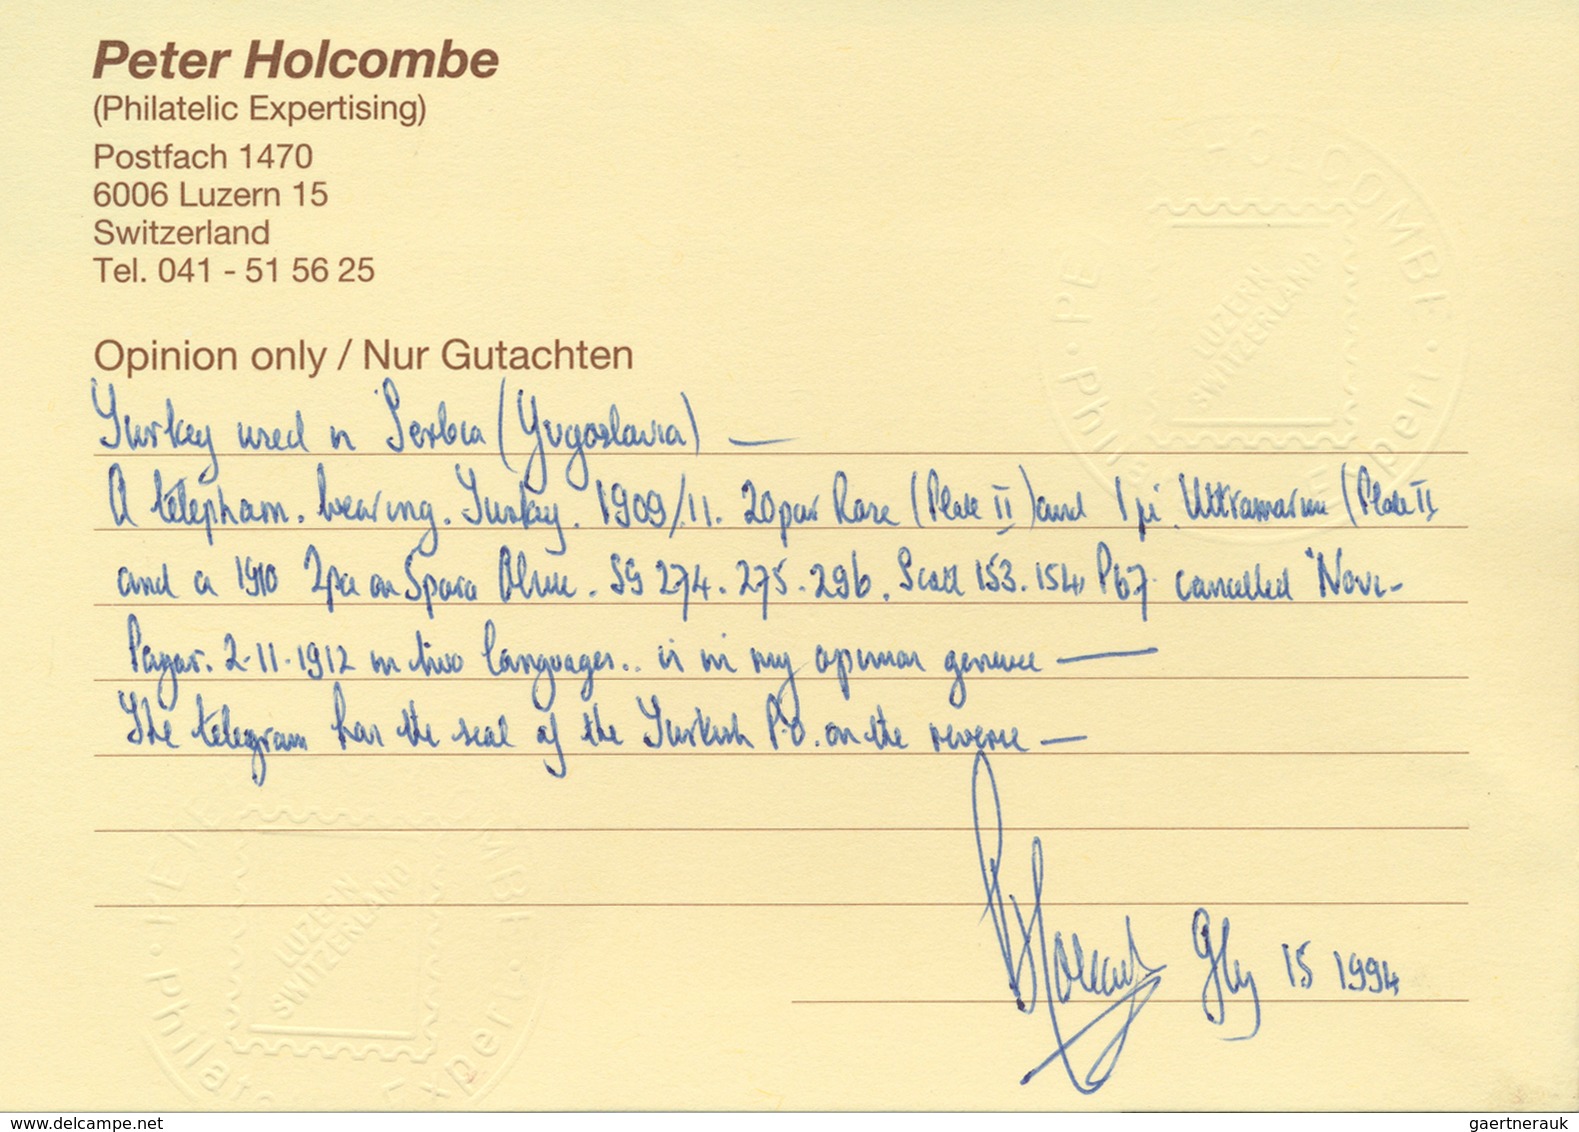 Peter Holcombe
(Philatelic Expertising)
Postfach 1470
6006 Luzern 15
Switzerland
Tel. 041 - 51 56 25
HOLCOMBE
LUZERN
SWITZERLAND
Opinion only / Nur Gutachten
Turkey used in Serbia (Yugoslavia) —
A telepham. bearing. Turkey. 1909/11. 20par Rose (Plate II) and 1 pi. Ultramarine (Plate II
and a 1910 2pa on 5para Olive. SG 274. 275. 296. Scott 153. 154, P67. cancelled "Novi-
Pazar. 2-11-1912 in two languages.. is in my opinion genuine —
The telegram has the seal of the Turkish P.O. on the reverse —
LUZERN
SWITZERLAND
PHolcombe July 15 1994
delcampe.net
gaertnerauk